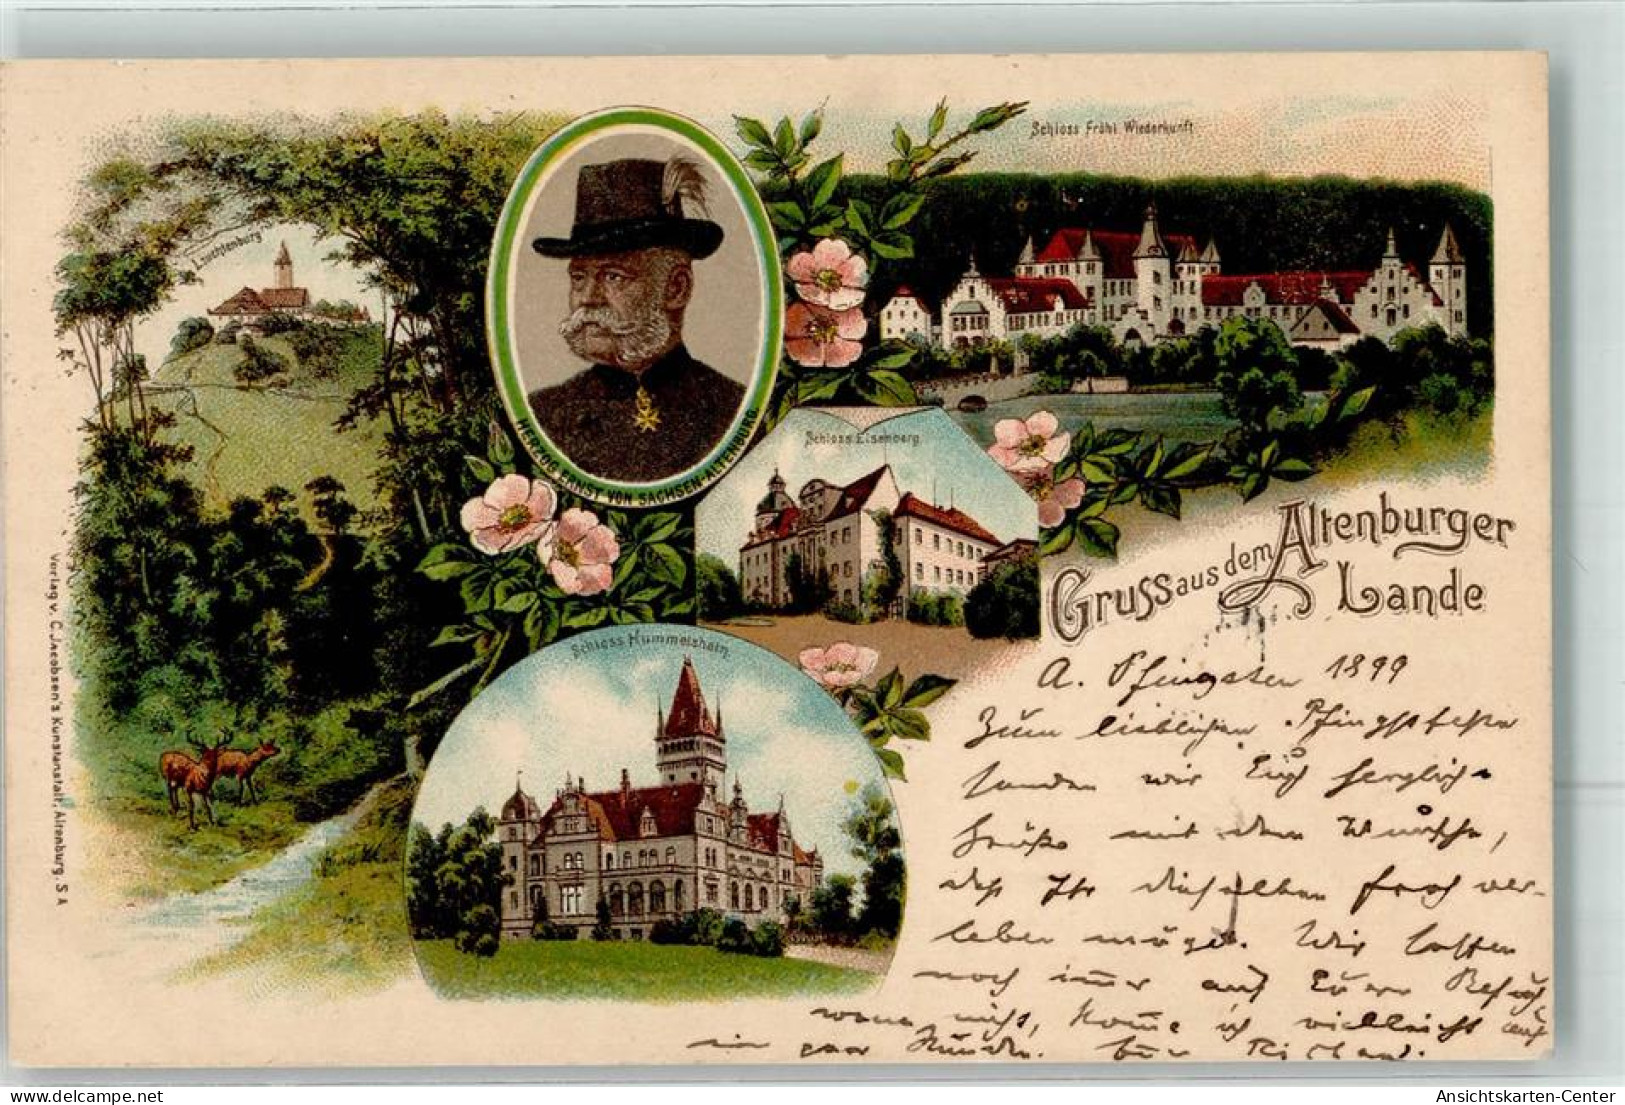 Schloss Fröhl Wiederkunft
Leuchtenburg
HERZOG ERNST VON SACHSEN-ALTENBURG.
Schloss Eisenberg.
Gruss aus dem Altenburger
Lande
Schloss Hummelshain.
Verlag v. C. Jacobsen's Kunstanstalt, Altenburg, S A
A. Pfingsten 1899
Zum lieblichen Pfingstfeste
senden wir Euch herzliche
Grüße mit dem Wunsche,
daß Ihr dieselben froh ver-
leben möget. Wir hofften
noch immer auf Euren Besuch
wenn nicht, komme ich vielleicht auf
ein paar Stunden.
AnsichtsKarten-Center
www.delcampe.net